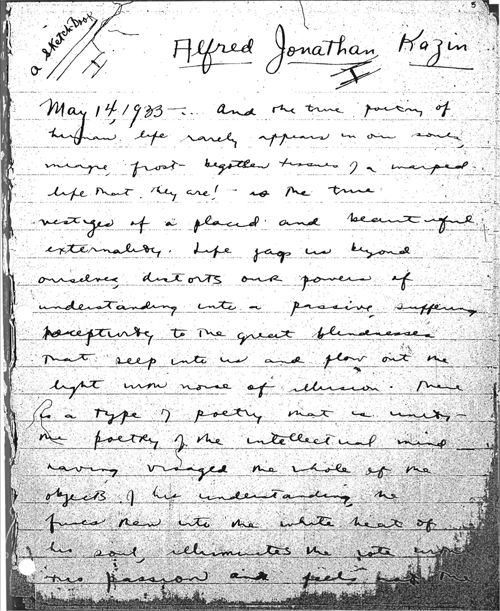 5
a Sketch Book
Alfred Jonathan Kazin
May 14, 1933 — ... And the true poetry of
human life rarely appears in our souls,
meagre, frost-begotten tissues of a warped
life that they are! — as the true
vestiges of a placid and beautiful
externality. Life jags us beyond
ourselves, distorts our powers of
understanding into a passive, suffering
receptivity to the great blindnesses
that seep into us and flow out the
light noise of illusion. There
is a type of poetry that is unity—
the poetry of the intellectual mind
having visaged the whole of the
objects of his understanding, he
fuses them into the white heat of
his soul, illuminates the
this passion and feels the